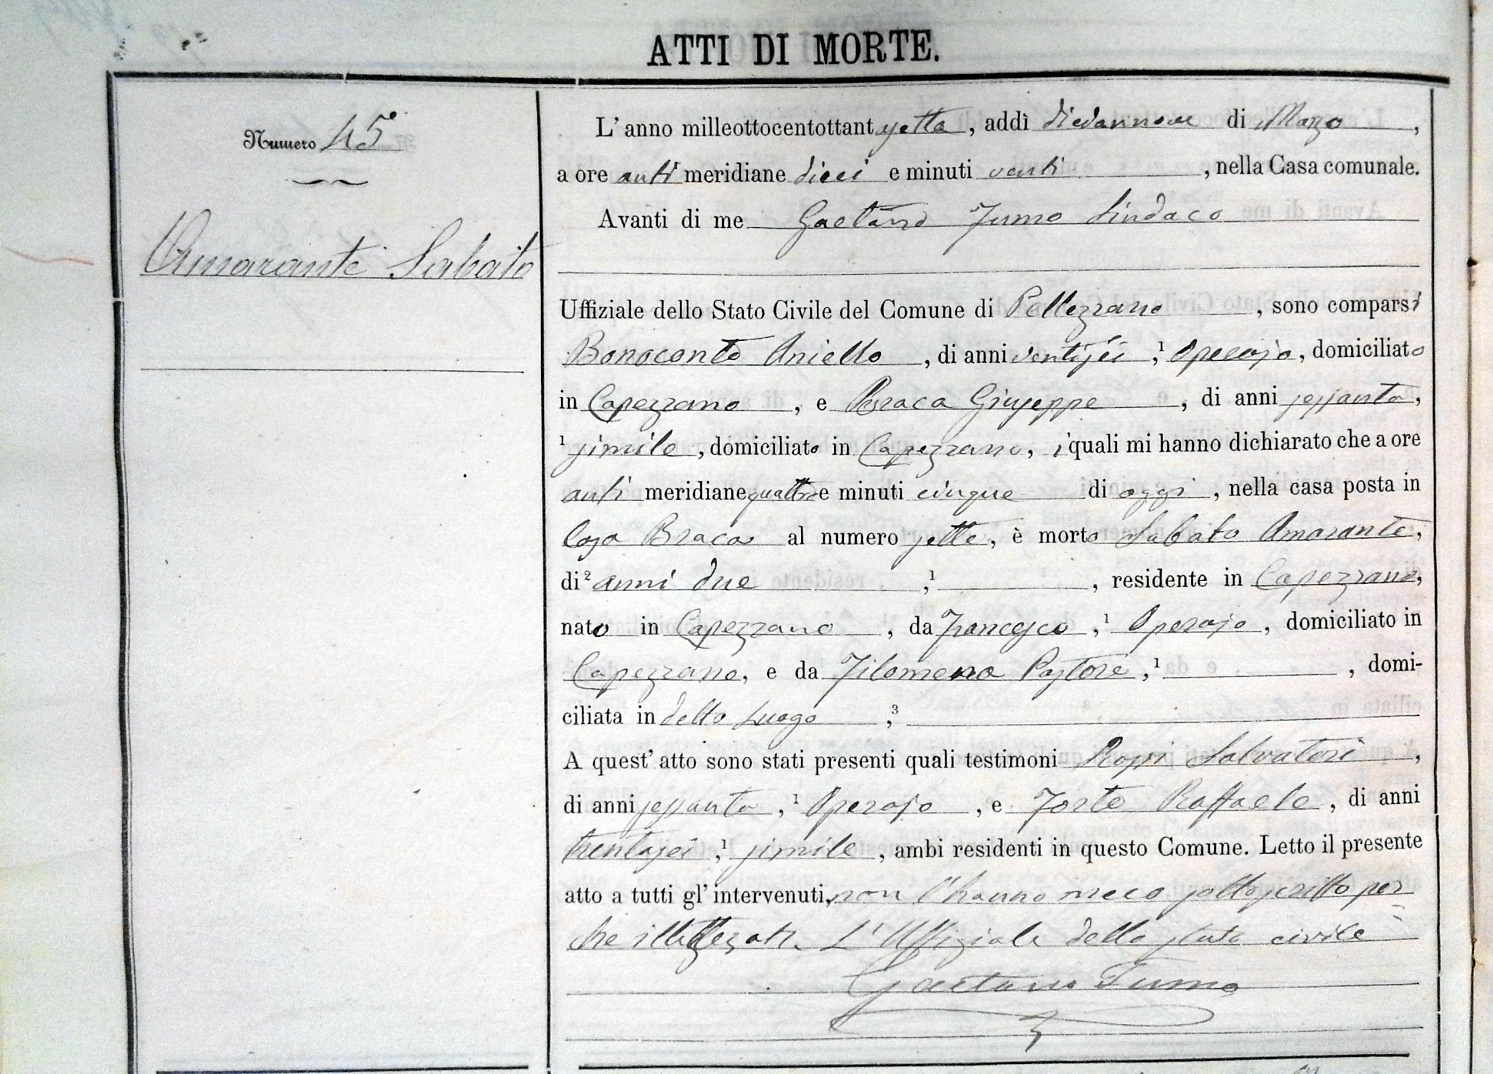 ATTI DI MORTE.
Numero 45
Amarante Sabato
L'anno milleottocentottantasette, addì diciannove di Marzo,
a ore anti meridiane dieci e minuti venti, nella Casa comunale.
Avanti di me Gaetano Fumo Sindaco
Uffiziale dello Stato Civile del Comune di Pellezzano, sono comparsi
Bonoconto Aniello, di anni ventisei, ¹ Operajo, domiciliato
in Capezzano, e Braca Giuseppe, di anni sessanta,
¹ simile, domiciliato in Capezzano, i quali mi hanno dichiarato che a ore
anti meridiane quattro e minuti cinque di oggi, nella casa posta in
Casa Braca al numero sette, è morto Sabato Amarante,
di ² anni due, ¹ , residente in Capezzano,
nato in Capezzano, da Francesco, ¹ Operajo, domiciliato in
Capezzano, e da Filomena Pastore, ¹ , domi-
ciliata in detto Luogo, ³
A quest'atto sono stati presenti quali testimoni Rossi Salvatore,
di anni sessanta, ¹ Operajo, e Forte Raffaele, di anni
trentasei, ¹ simile, ambi residenti in questo Comune. Letto il presente
atto a tutti gl'intervenuti, non l'hanno meco sottoscritto per-
che illetterati. L'Uffiziale dello stato civile
Gaetano Fumo